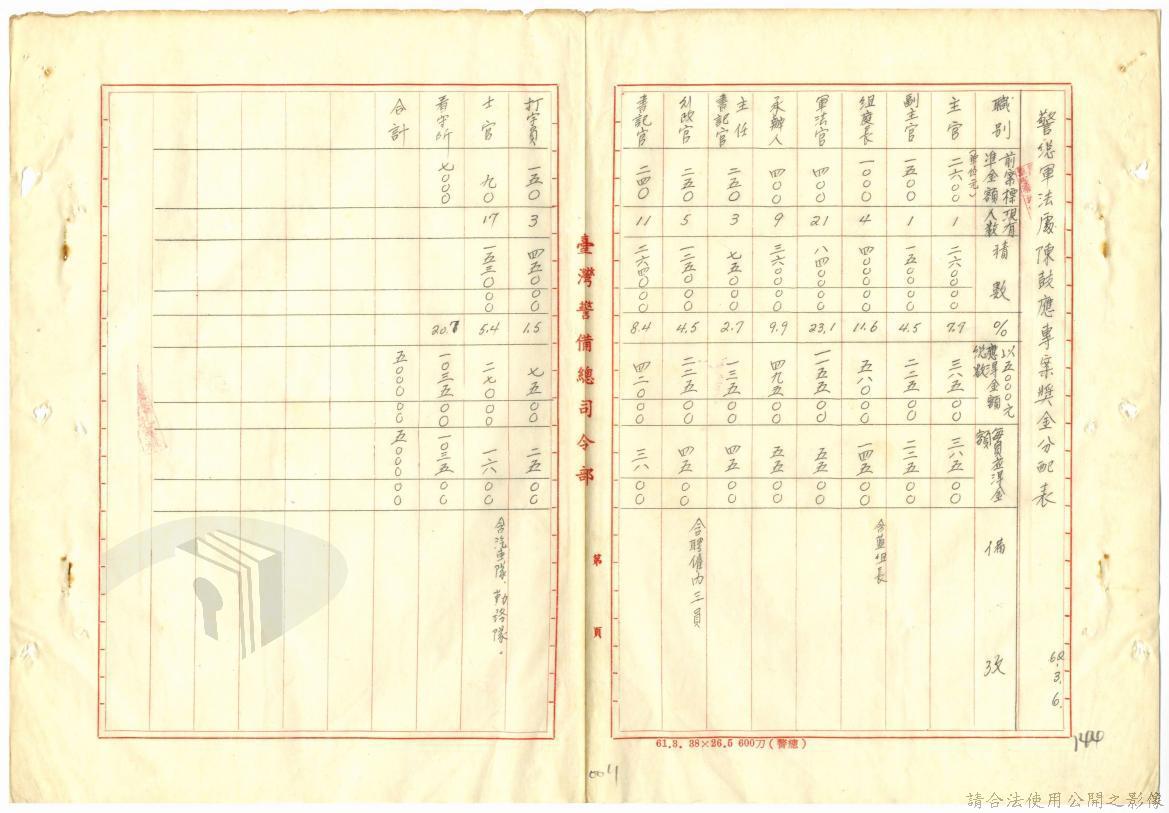 警總軍法處陳鼓應專案獎金分配表
62.3.6.
職別 前案標準金額(單位元) 現有人數 積數 % 以五〇〇〇元應得金額總數 每員應得金額 備攷
主官 二六〇〇 1 二六〇〇〇〇 7.7 三八五〇〇 三八五〇〇
副主官 一五〇〇 1 一五〇〇〇〇 4.5 二二五〇〇 二二五〇〇
組庭長 一〇〇〇 4 四〇〇〇〇〇 11.6 五八〇〇〇 一四五〇〇 含藍組長
軍法官 四〇〇 21 八四〇〇〇〇 23.1 一一五五〇〇 五五〇〇
承辦人 四〇〇 9 三六〇〇〇〇 9.9 四九五〇〇 五五〇〇
主任書記官 二五〇 3 七五〇〇〇 2.7 一三五〇〇 四五〇〇
行政官 二五〇 5 一二五〇〇〇 4.5 二二五〇〇 四五〇〇 含聘僱內三員
書記官 二四〇 11 二六四〇〇〇 8.4 四二〇〇〇 三八〇〇
61.3. 38×26.5 600刀(警總)
144
臺灣警備總司令部 第 頁
打字員 一五〇 3 四五〇〇〇 1.5 七五〇〇 二五〇〇
士官 九〇 17 一五三〇〇〇 5.4 二七〇〇〇 一六〇〇 含汽車隊、勤務隊。
看守所 七〇〇〇 20.7 一〇三五〇〇 一〇三五〇〇
合計 五〇〇〇〇〇 五〇〇〇〇〇
請合法使用公開之影像